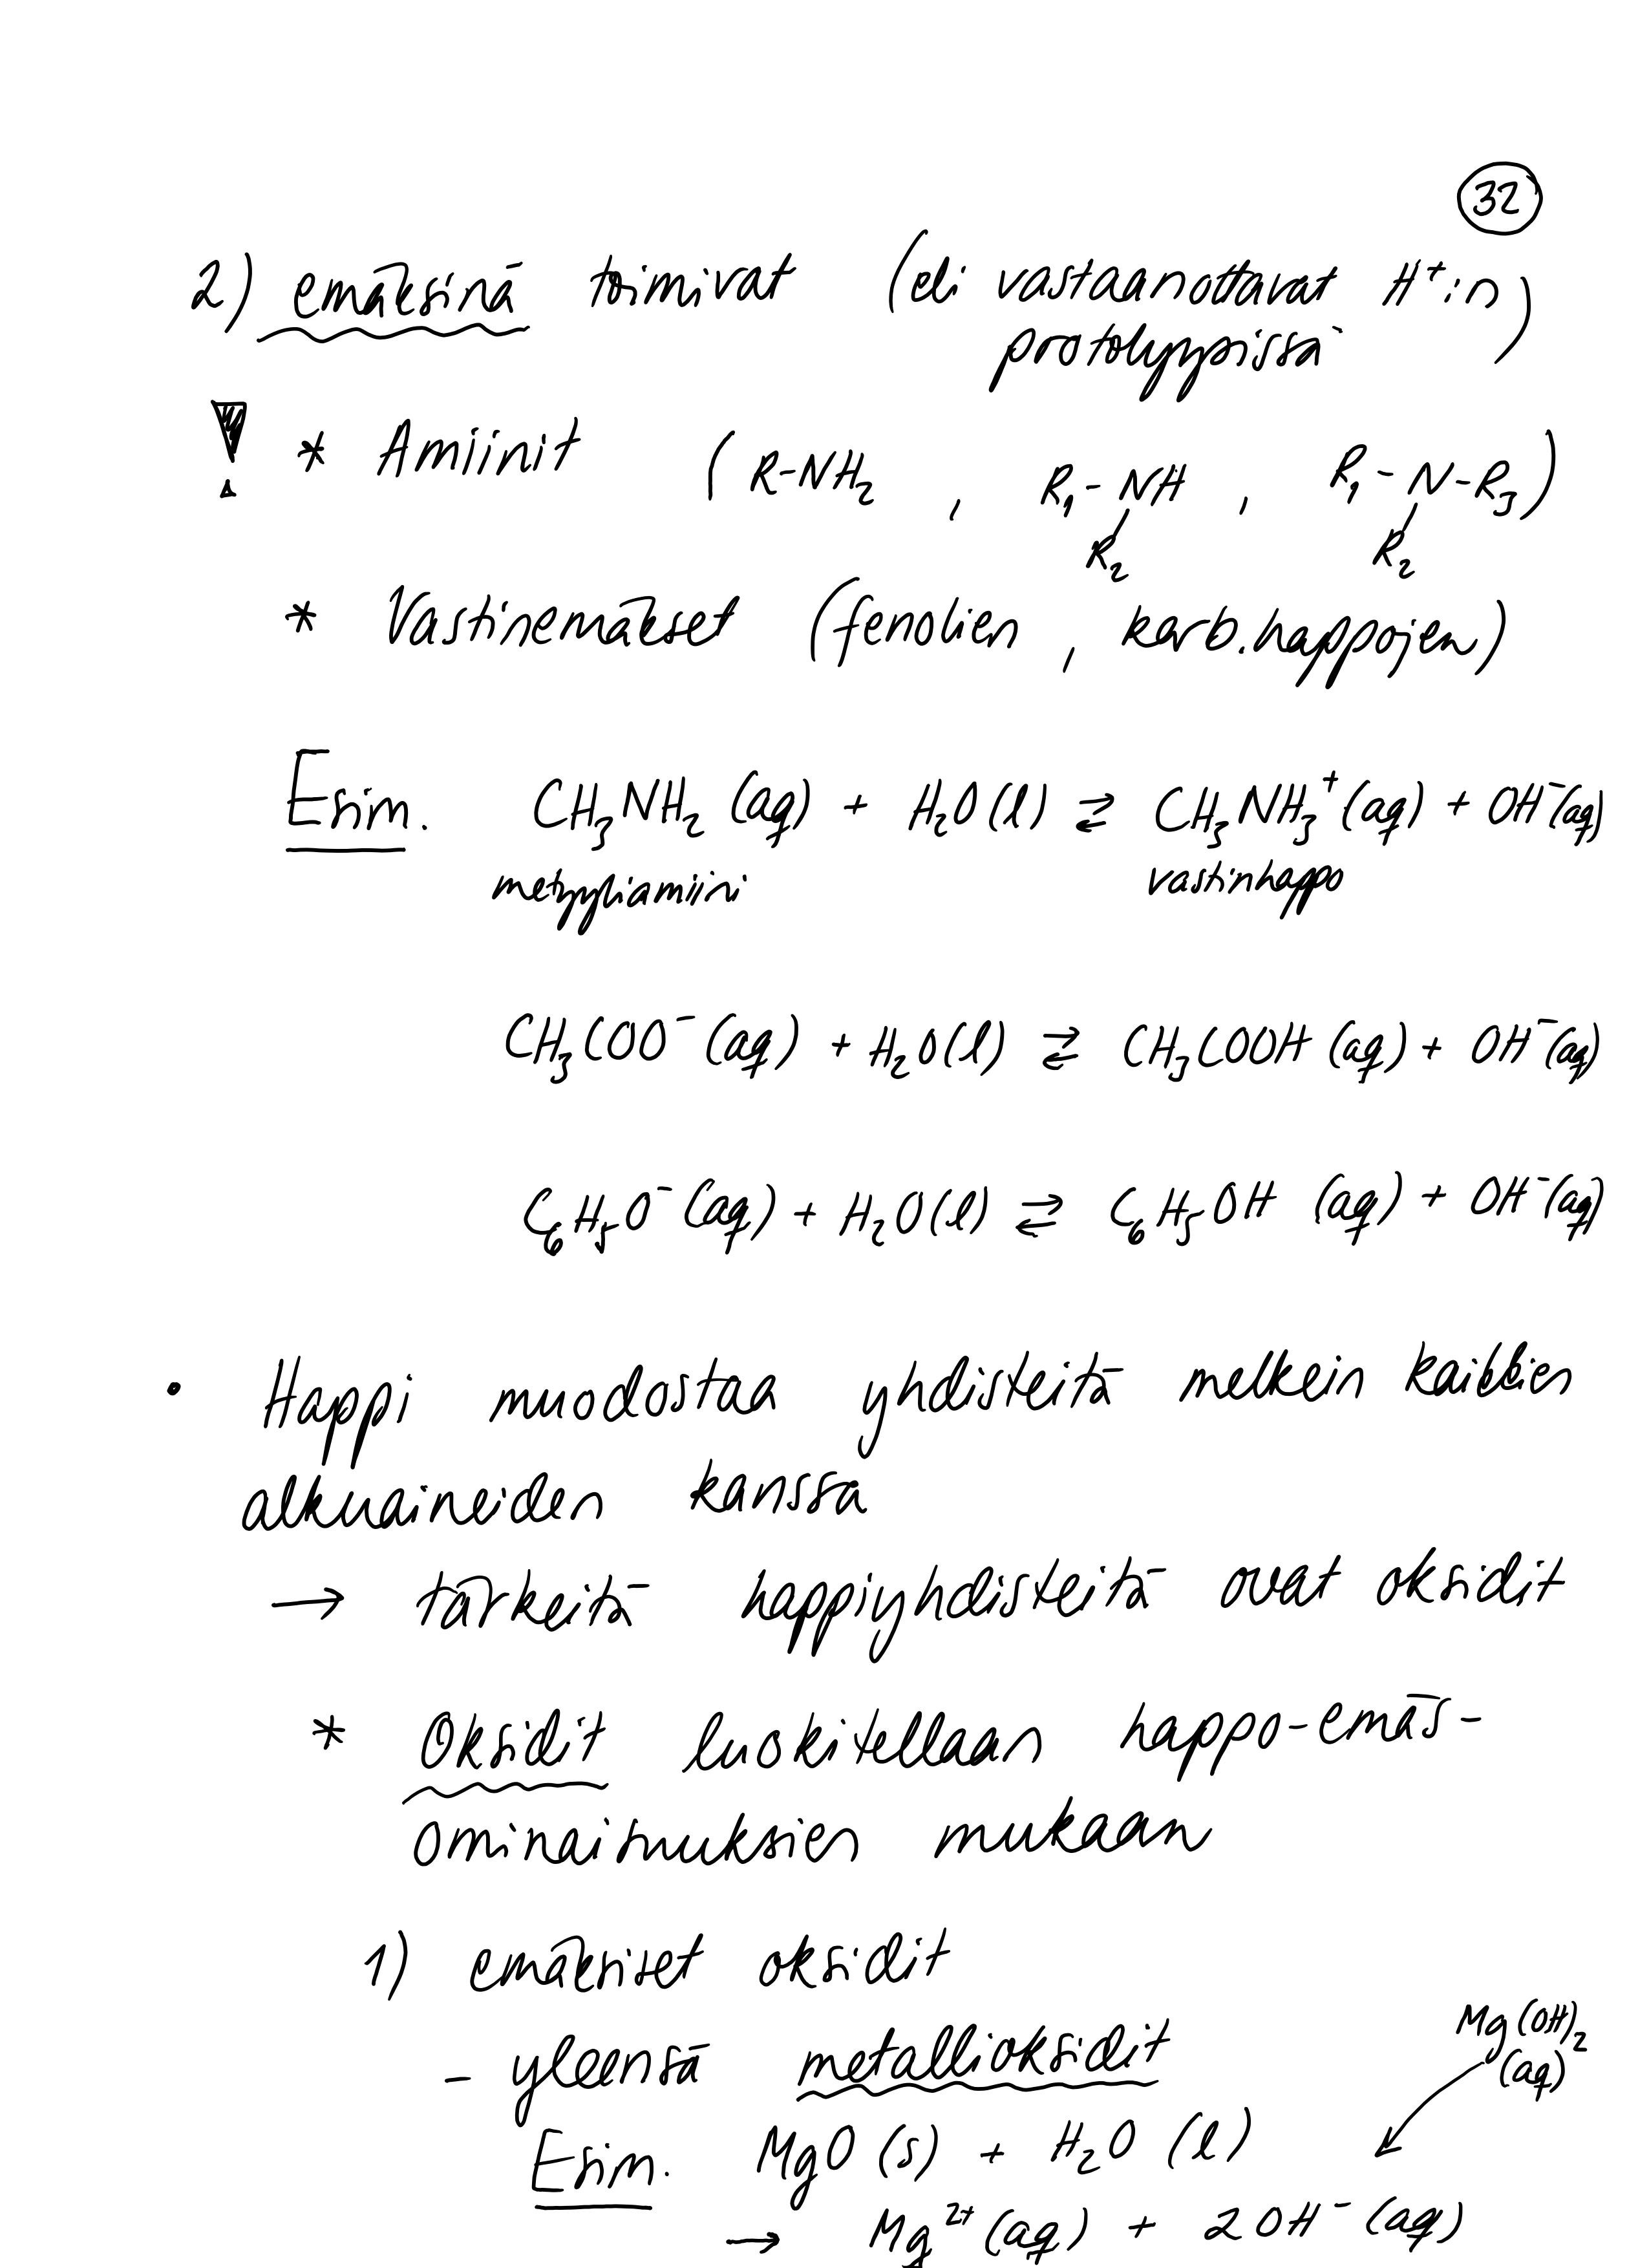 32
2) emäksinä toimivat (eli vastaanottavat H⁺:n
protolyysissä)
! * Amiinit (R-NH₂ , R₁-NH , R₁-N-R₃)
R₂ R₂
* Vastinemäkset (fenolien , karb.happojen)
Esim. CH₃NH₂ (aq) + H₂O (l) ⇄ CH₃NH₃⁺ (aq) + OH⁻(aq)
metyyliamiini vastinhappo
CH₃COO⁻ (aq) + H₂O(l) ⇄ CH₃COOH (aq) + OH⁻(aq)
C₆H₅O⁻ (aq) + H₂O(l) ⇄ C₆H₅OH (aq) + OH⁻(aq)
• Happi muodostaa yhdisteitä melkein kaikkien
alkuaineiden kanssa
→ tärkeitä happiyhdisteitä ovat oksidit
* Oksidit luokitellaan happo-emäs-
ominaisuuksien mukaan
1) emäksiset oksidit
- yleensä metallioksidit
Mg(OH)₂
(aq)
Esim. MgO (s) + H₂O (l)
→ Mg²⁺ (aq) + 2 OH⁻ (aq)